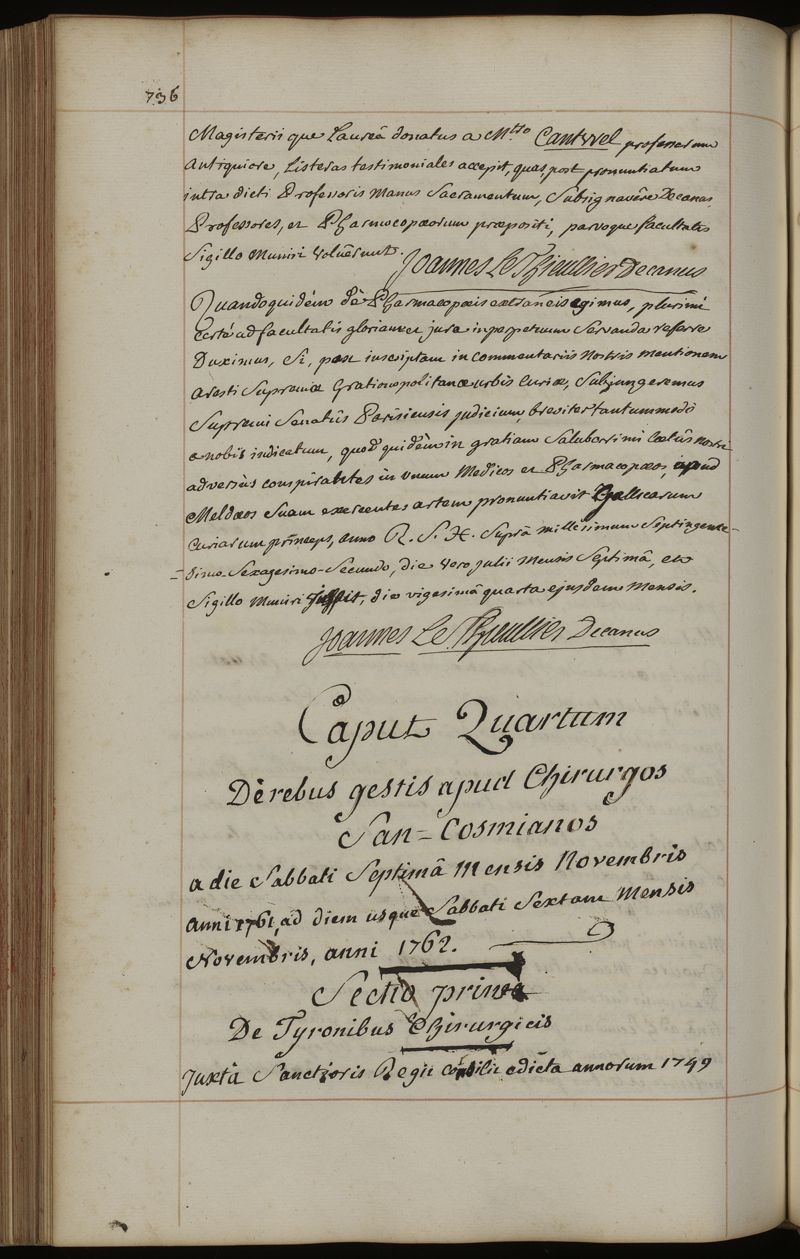 736
Magisterii que Laureâ donatus a M.tro Cantvvel professorum
antiquiore, Litteras testimoniales accepit, quas, post pronuntiatum
intra dicti Professoris manus Sacramentum, Subsignavêre Decanus
Professores, et Pharmocopœorum præpositi, parvoque facultatis
Sigillo muniri voluêrunt.
Joannes Le Thieullier Decanus
Quandoquidèm dè Pharmacopœis extraneis egimus, plurimi
certè ad facultatis gloriam et jura in perpetuum Servanda referre
Duximus, Si, post inscriptam in commentariis nostris mentionem
aresti Supremæ Gratianopolitanæ urbis Curiæ, Subjungeremus
Supremi Senatûs Parisiensis judicium, breviter tantummodò
a nobis indicatum, quod quidèm in gratiam Saluberrimi Cœtûs nostri
adversùs conspirantes in unum Medicos et Pharmacopœos, apud
Meldæos Suam exercentes artem pronuntiavit Gallicarum
Curiarum princeps, anno R. S. H. Suprà millesimum Septingente-
=simo-Sexagesimo-Secundo, die vero julii mensis Septimâ, et
Sigillo muniri jussit, die vigesimâ quarta ejusdem mensis.
Joannes Le Thieullier Decanus
Caput Quartum
Dè rebus gestis apud Chirurgos
San=Cosmianos
a die Sabbati Septimâ mensis Novembris
anni 1761, ad diem usque Sabbati Sextam Mensis
Novembris, anni 1762.
Sectio prima
De Tyronibus Chirurgicis
Juxtà Sanctioris Regii consilii edicta annorum 1749